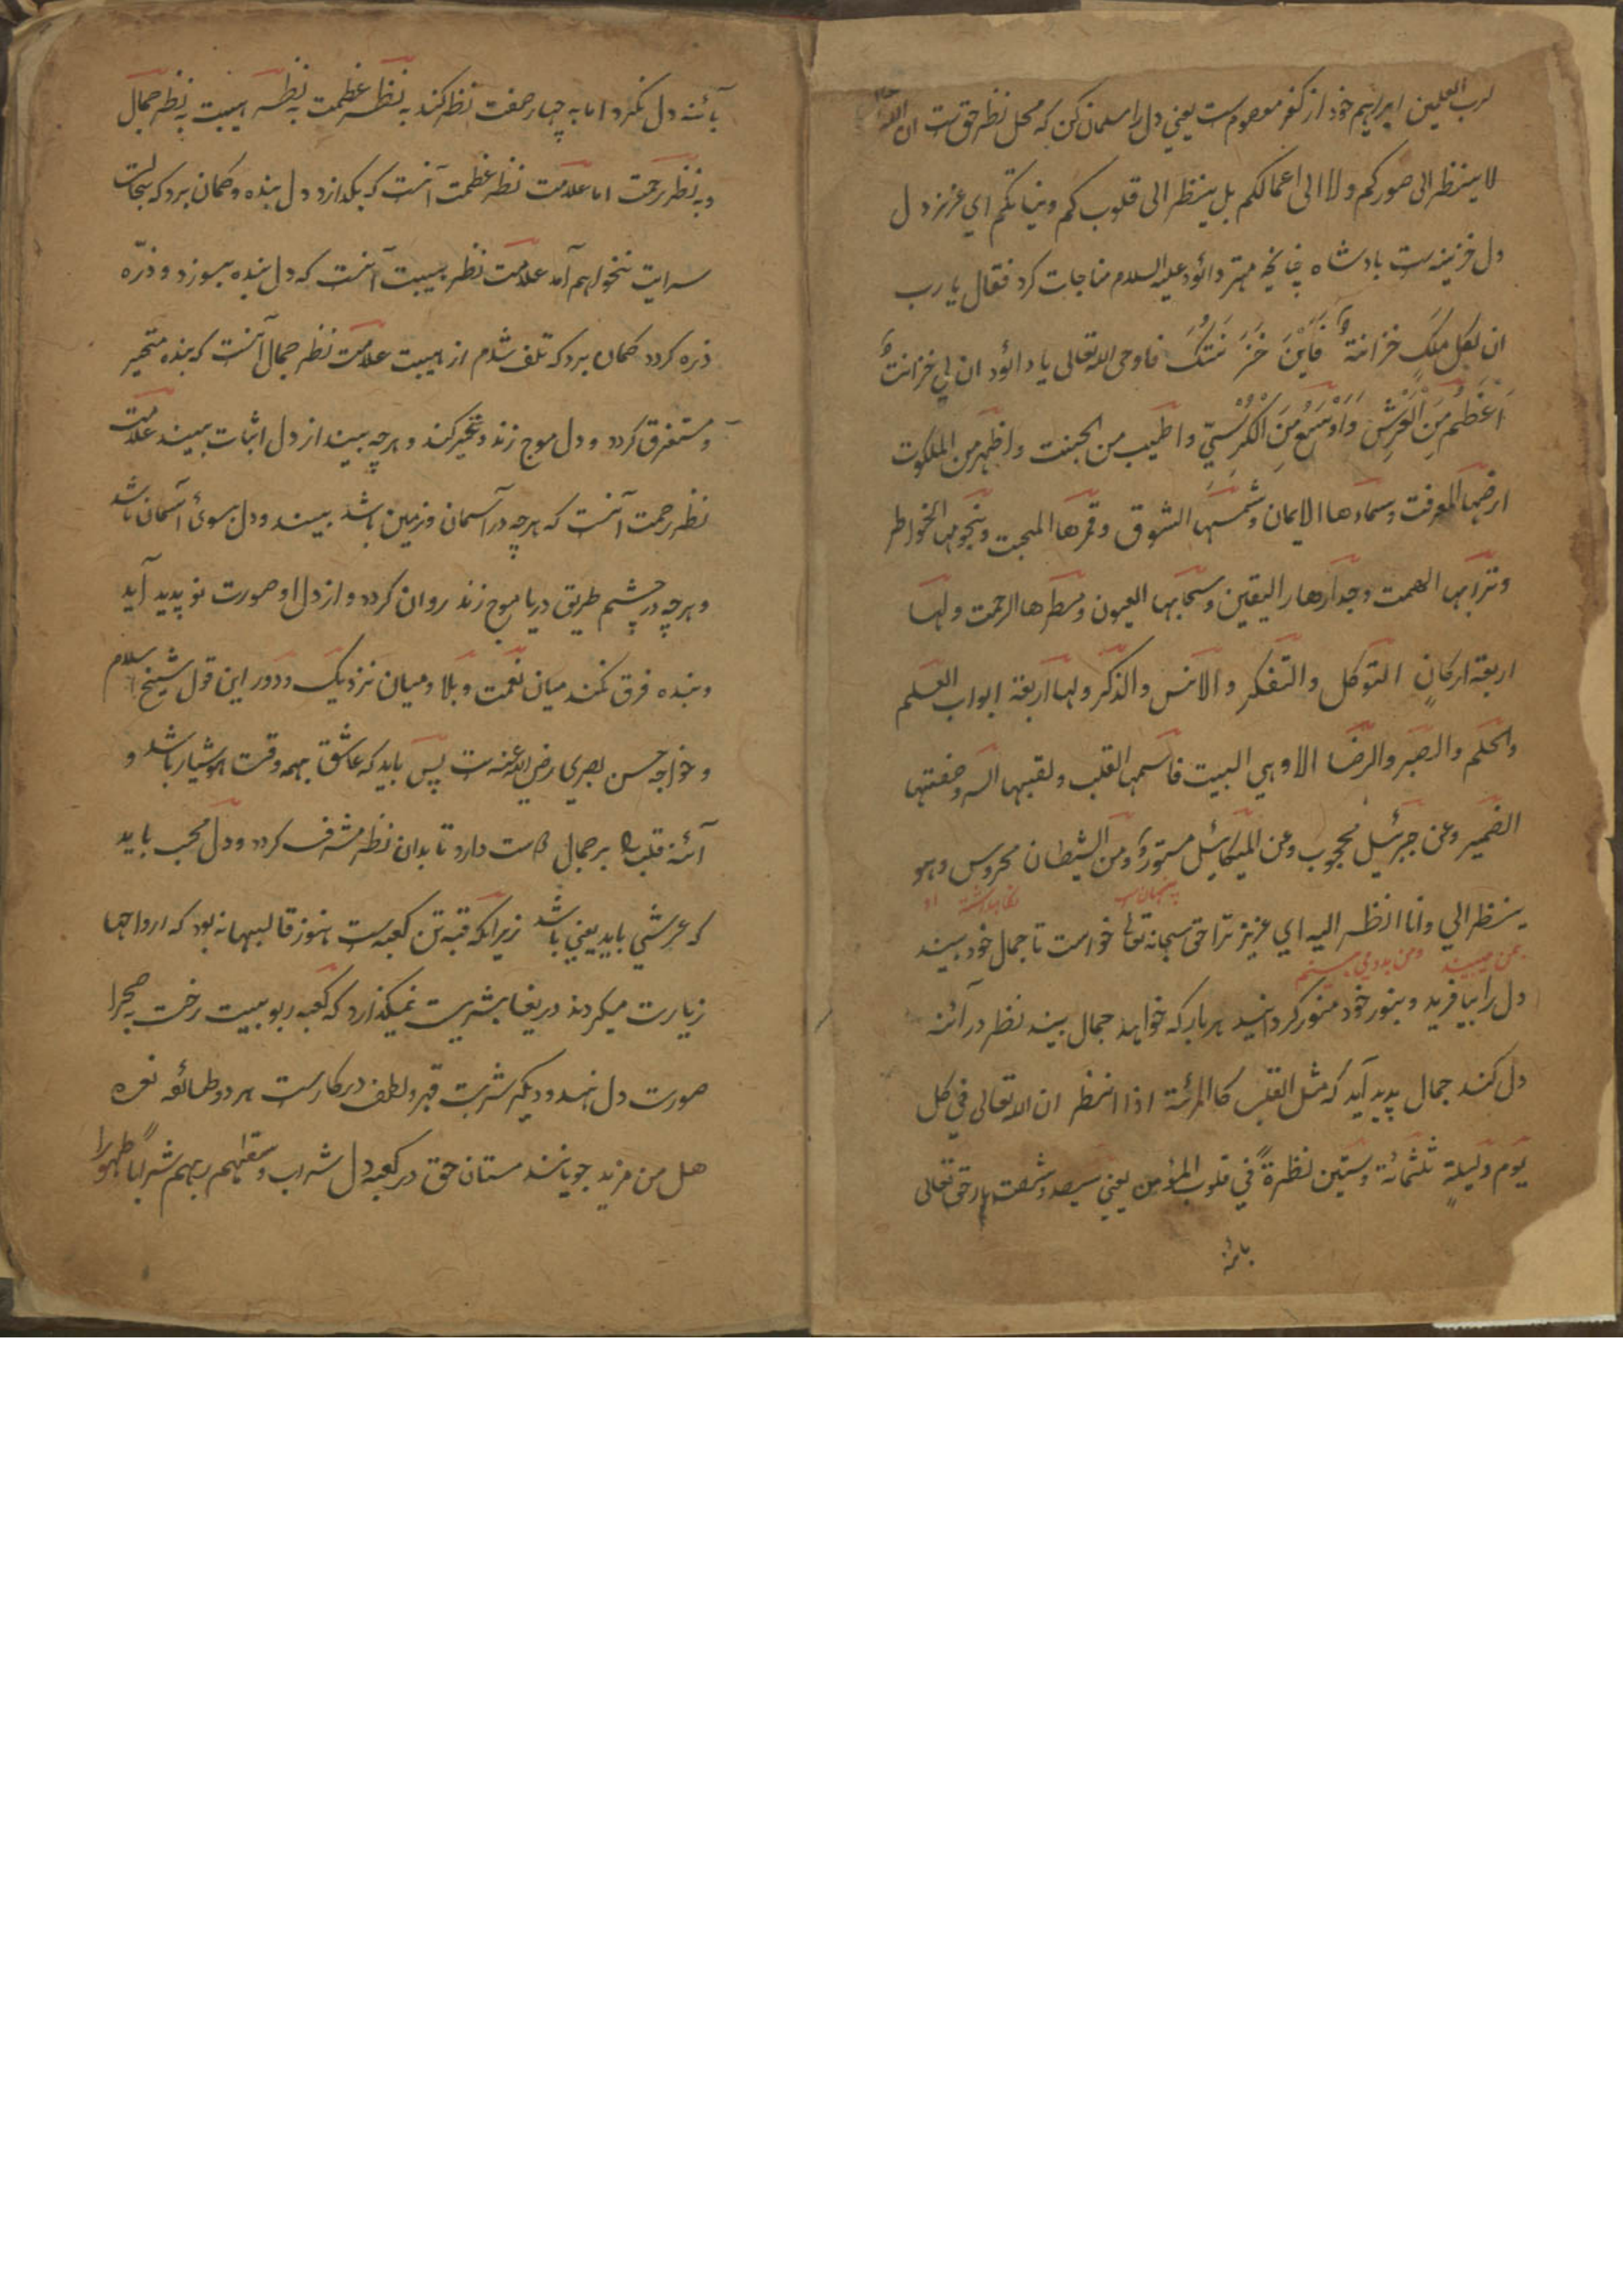 لرب العلمین ابراهیم خود از کفر معصوم ست یعنی دل را مسلمان کن که محل نظر حق ست ان الله تعالی
لا ینظر الی صورکم ولا الی اعمالکم بل ینظر الی قلوبکم ونیاتکم ای عزیز دل
دل خزینه ست بادشاه چنانچه مهتر دائود علیه السلام مناجات کرد فقال یا رب
ان لکل ملک خزانة فاین خزنتک فاوحی الله تعالی یا دائود ان لی خزانة
اعظم من العرش واوسع من الکرسی واطیب من الجنت واظهر من الملکوت
ارضها المعرفت وسماءها الایمان وشمسها الشوق وقمرها المحبت ونجومها الخواطر
وترابها الهمت وجدارها الیقین وسحابها العیون ومطرها الرحمت ولها
اربعة ارکان التوکل والتفکر والانس والذکر ولها اربعة ابواب العلم
والحلم والصبر والرضا الا وهی البیت فاسمها القلب ولقبها السر وصفتها
الضمیر وعن جبرئیل محجوب وعن المیکائیل مستور ومن الشیطان محروس وهو
پنهان ست نگاهداشته او
ینظر الی وانا انظر الیه ای عزیز ترا حق سبحانه تعالی خواست تا جمال خود بیند
بمن میبیند ومن بدو می بینم
دل را بیافرید وبنور خود منور گردانید هر بار که خواهد جمال بیند نظر در آئنه
دل کند جمال پدید آید که مثل القلب کالمرئة اذا انظر ان الله تعالی فی کل
یوم ولیلة ثلثمائة وستین نظرة فی قلوب المؤمن یعنی سیصد وشصت بار حق تعالی
بائنه
بآئنه دل نگرد اما به چهار صفت نظر کند به نظر عظمت به نظر هیبت به نظر جمال
وبه نظر رحمت اما علامت نظر عظمت آنست که بگدازد دل بنده وگمان برد که بحالت
سرایت نخواهم آمد علامت نظر هیبت آنست که دل بنده بسوزد و ذره
ذره گردد گمان برد که تلف شدم از هیبت علامت نظر جمال آنست که بنده متحیر
و مستغرق گردد و دل موج زند و تحیر کند و هرچه بیند از دل اثبات بیند علامت
نظر رحمت آنست که هرچه در آسمان وزمین باشد بیند ودل بسوئ آسمان باشد
وهرچه در چشم طریق دریا موج زند روان گردد و از دل او صورت نو پدید آید
وبنده فرق نکند میان نعمت وبلا ومیان نزدیک ودور این قول شیخ اسلام
و خواجه حسن بصری رضی الله عنه ست پس باید که عاشق بهمه وقت هوشیار باشد و
آئنه قلب را بر جمال راست دارد تا بدان نظر مشرف گردد ودل محب باید
که عرشی باید یعنی باشد زیرا که قبه تن کعبه ست هنوز قالبها نه بود که ارواحها
زیارت میکردند دریغا بشریت نمیگذارد که کعبه ربوبیت رخت به صحرا
صورت دل نهد ودیگر شربت قهر ولطف در کارست هر دو طائفه نعره
هل من مزید جویانند مستان حق در کعبه دل شراب وسقیهم ربهم شرابا طهورا